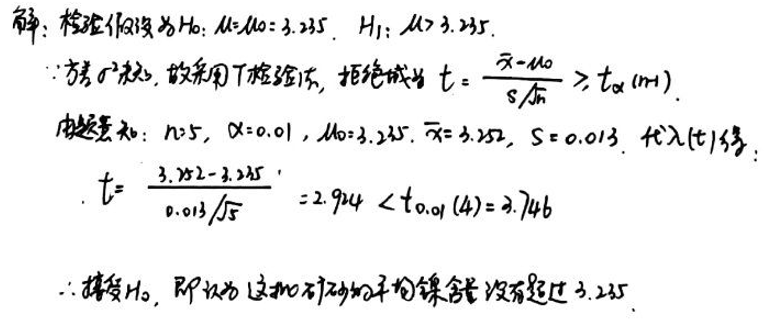 解：检验假设为H₀：μ=μ₀=3.235. H₁：μ>3.235.
∵方差σ²未知，故采用T检验法，拒绝域为 t = (x̄-μ₀)/(S/√n) ≥ tα(n-1).
由题意知：n=5, α=0.01, μ₀=3.235. x̄=3.252, S=0.013. 代入(t)得：
t = (3.252-3.235)/(0.013/√5) = 2.924 < t₀.₀₁(4)=3.746
∴接受H₀，即认为这批矿砂的平均镍含量没有超过3.235.